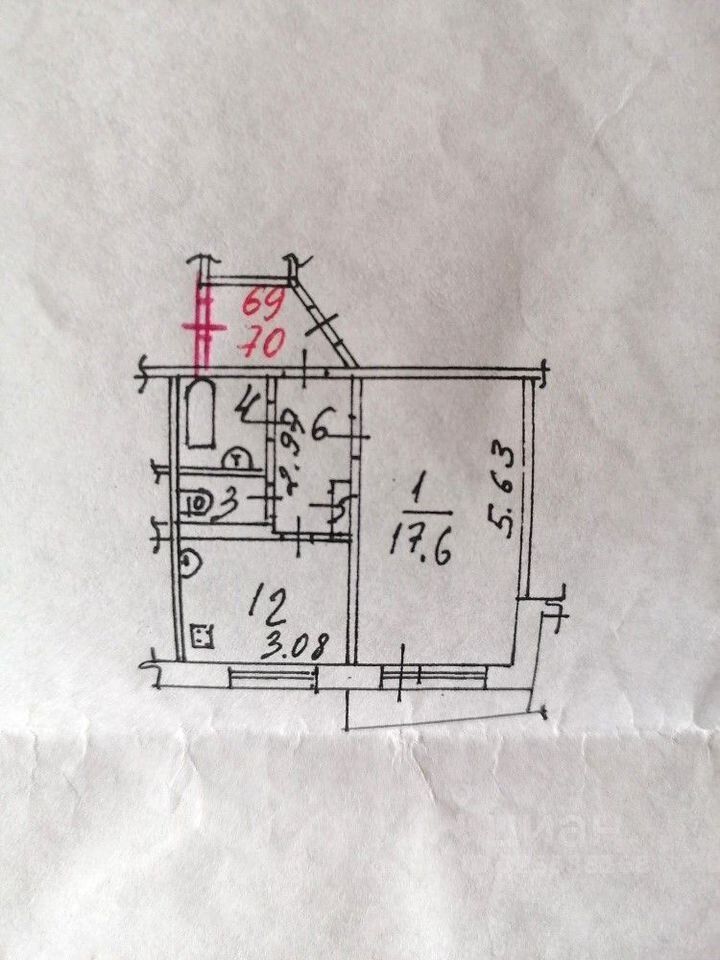 69
70
4
2.97
6
1
17.6
5.63
3
5
12
3.08
циан